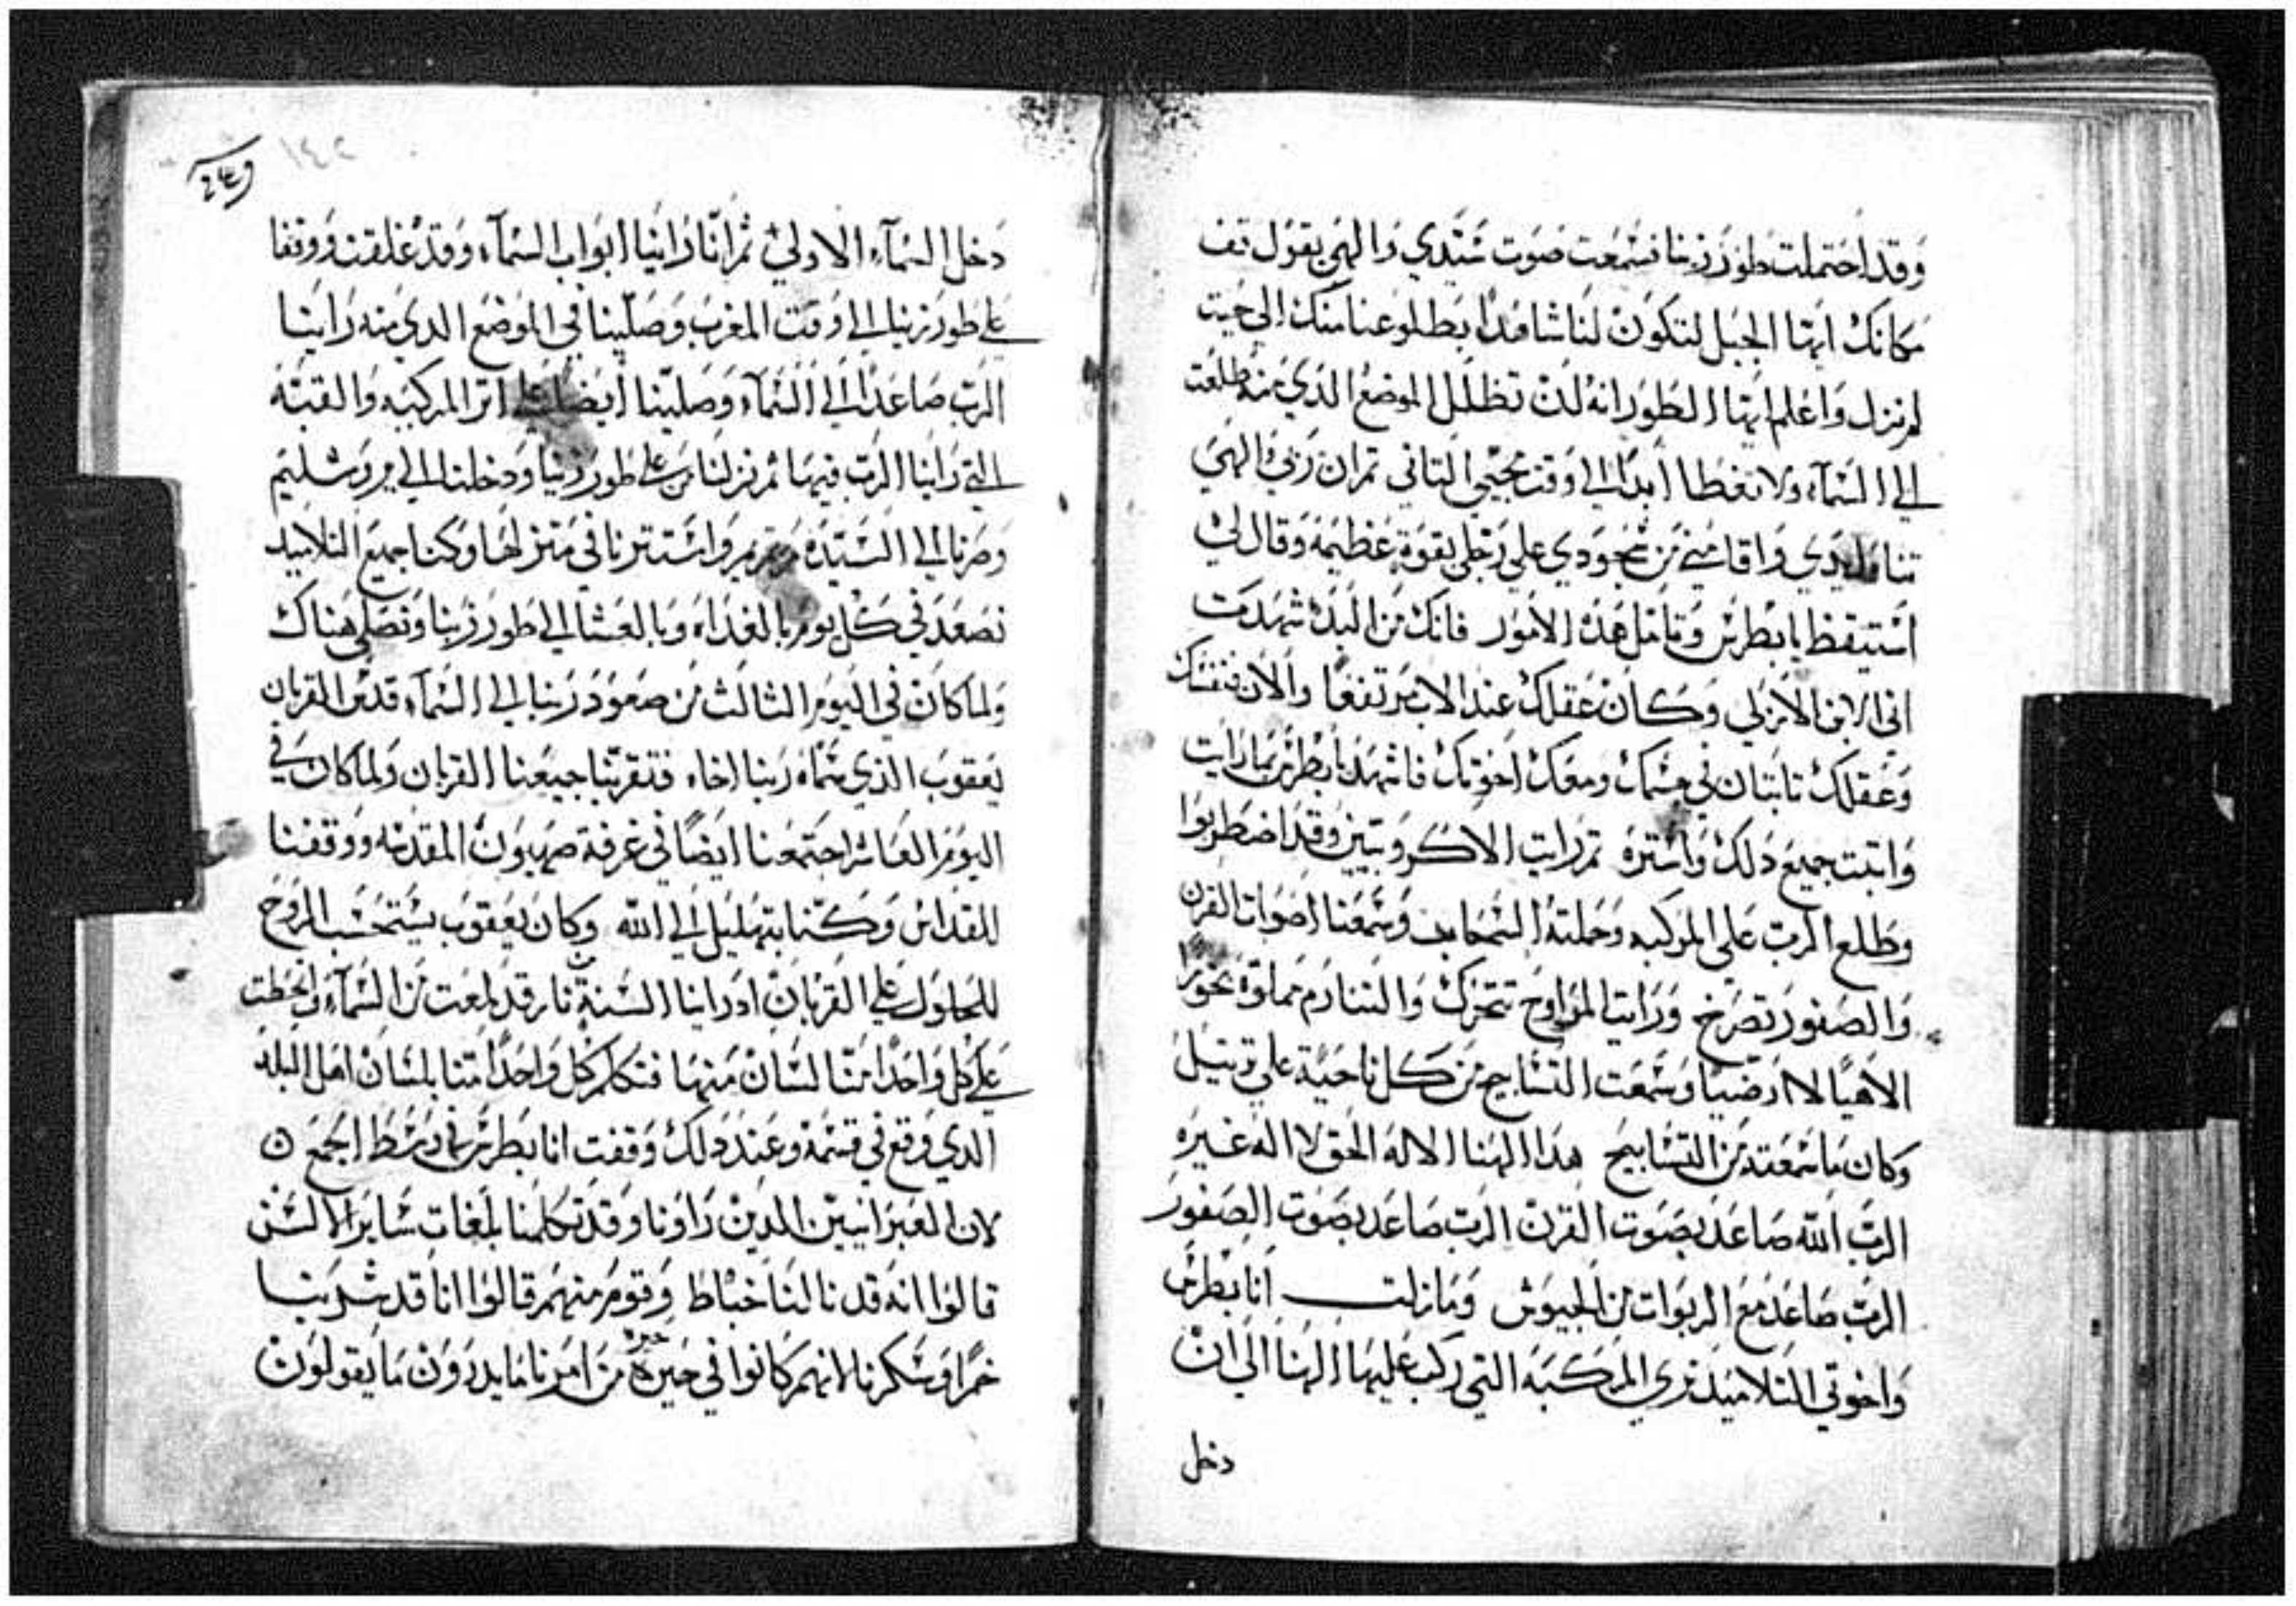 وقد احتملت طور زيتا فسمعت صوت سيدي والهي يقول قف
مكانك ايها الجبل لتكون لنا شاهدا بطلوعنا منك الي حيت
لم نزل واعلم ايها الطور انه لن تظلل الموضع الدي منه طلعت
الي السماء ولا تغطا ابدا الي وقت مجيي التاني تم ان ربي والهي
تناول يدي واقامني من سجودي علي رجلي بقوة عظيمة وقال لي
استيقظ يا بطرس وتامل هده الامور فانك من البدء شهدت
اني الابن الازلي وكان عقلك عند الاب مرتفعا والان نفسك
وعقلك تابتان في جسمك ومعك اخوتك فاشهد يا بطرس بما رايت
واتبت جميع دلك واستره تم رايت الاكروبيين وقد اضطربوا
وطلع الرب علي المركبه وحملته السحاب وسمعنا اصوات القرن
والصفور تصرخ ورايت المراوح تتحرك والمنارم مملوة بخورا
الاهيا لا ارضيا وسمعت التسابيح من كل ناحية علي ترتيل
وكان ما سمعته من التسابيح هدا الهنا الاله الحق لا اله غيره
الرب الله صاعد بصوت القرن الرب صاعد بصوت الصفور
الرب صاعد مع الربوات من الجيوش وما زلت انا بطرس
واخوتي التلاميد نري المركبه التي ركب عليها الهنا الي ان
دخل
١٤٢
دخل السماء الاولي ثم انا راينا ابواب السماء وقد غلقت ووقفا
علي طور زيتا الي وقت المغرب وصلينا في الموضع الدي منه راينا
الرب صاعدا الي السماء وصلينا ايضا علي اتر المركبه والقبه
التي راينا الرب فيها تم نزلنا من علي طور زيتا ودخلنا الي يروشليم
وصرنا الي السيده مرتمريم واستترنا في منزلها وكنا جميع التلاميد
نصعد في كل يوم بالغداه وبالعشا الي طور زيتا ونصلي هناك
ولما كان في اليوم الثالث من صعود ربنا الي السماء قدس القربان
يعقوب الذي سماه ربنا اخاه فتقربنا جميعنا القربان ولما كان في
اليوم العاشر اجتمعنا ايضا في غرفة صهيون المقدسه ووقفنا
للقداس وكنا بتهليل الي الله وكان يعقوب يستحسب الروح
للحلول علي القربان اد راينا السنة نار قد لمعت من السماء وانحطت
علي كل واحدا منا لسان منها فتكلم كل واحدا منا بلسان اهل البلد
الدي وقع في قسمة وعند دلك وقفت انا بطرس في وسط الجمع ن
لان العبرانيين الدين راونا وقد تكلمنا بلغات ساير الالسن
قالوا انه قد نالنا خباط وقوم منهم قالوا انا قد شربنا
خمرا وسكرنا لانهم كانوا في حيرة حيره من امرنا ما يدرون ما يقولون